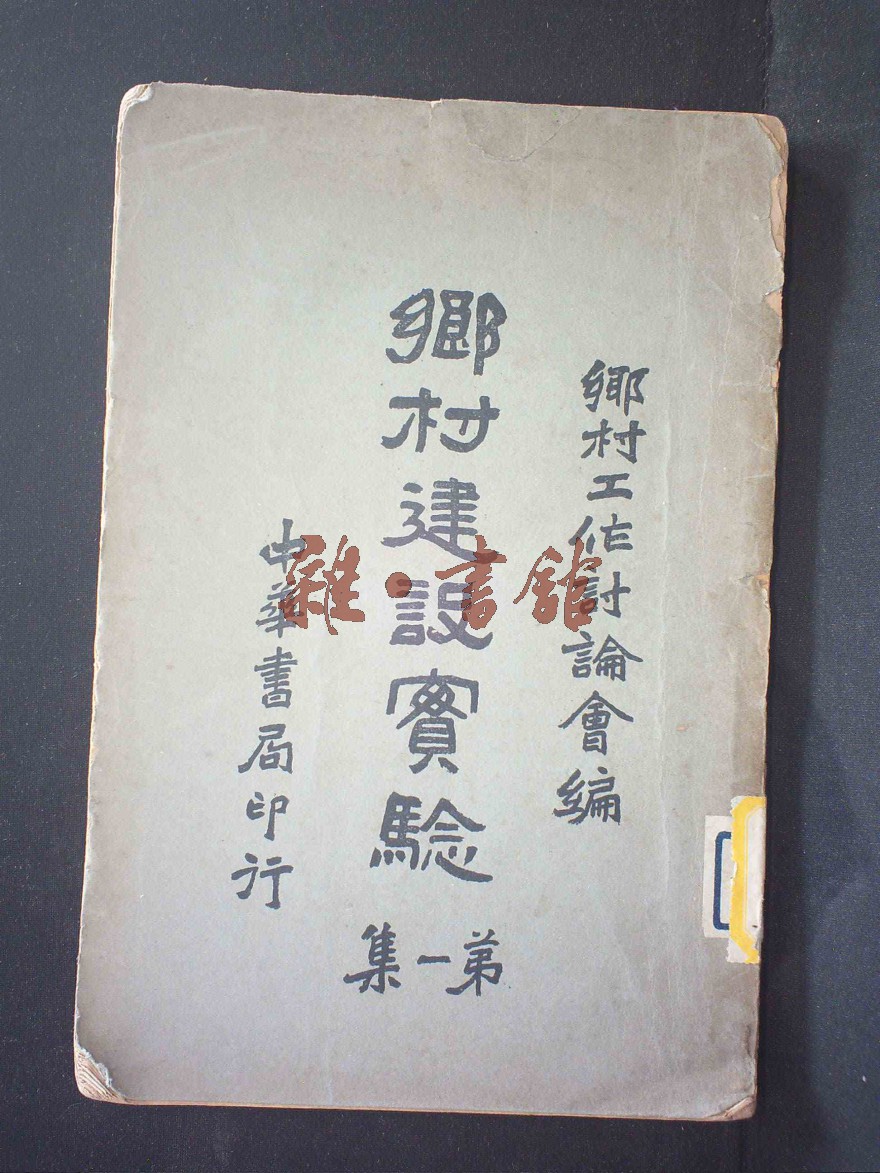 鄉村工作討論會編
鄉村建設實驗
第一集
中華書局印行
雜·書館